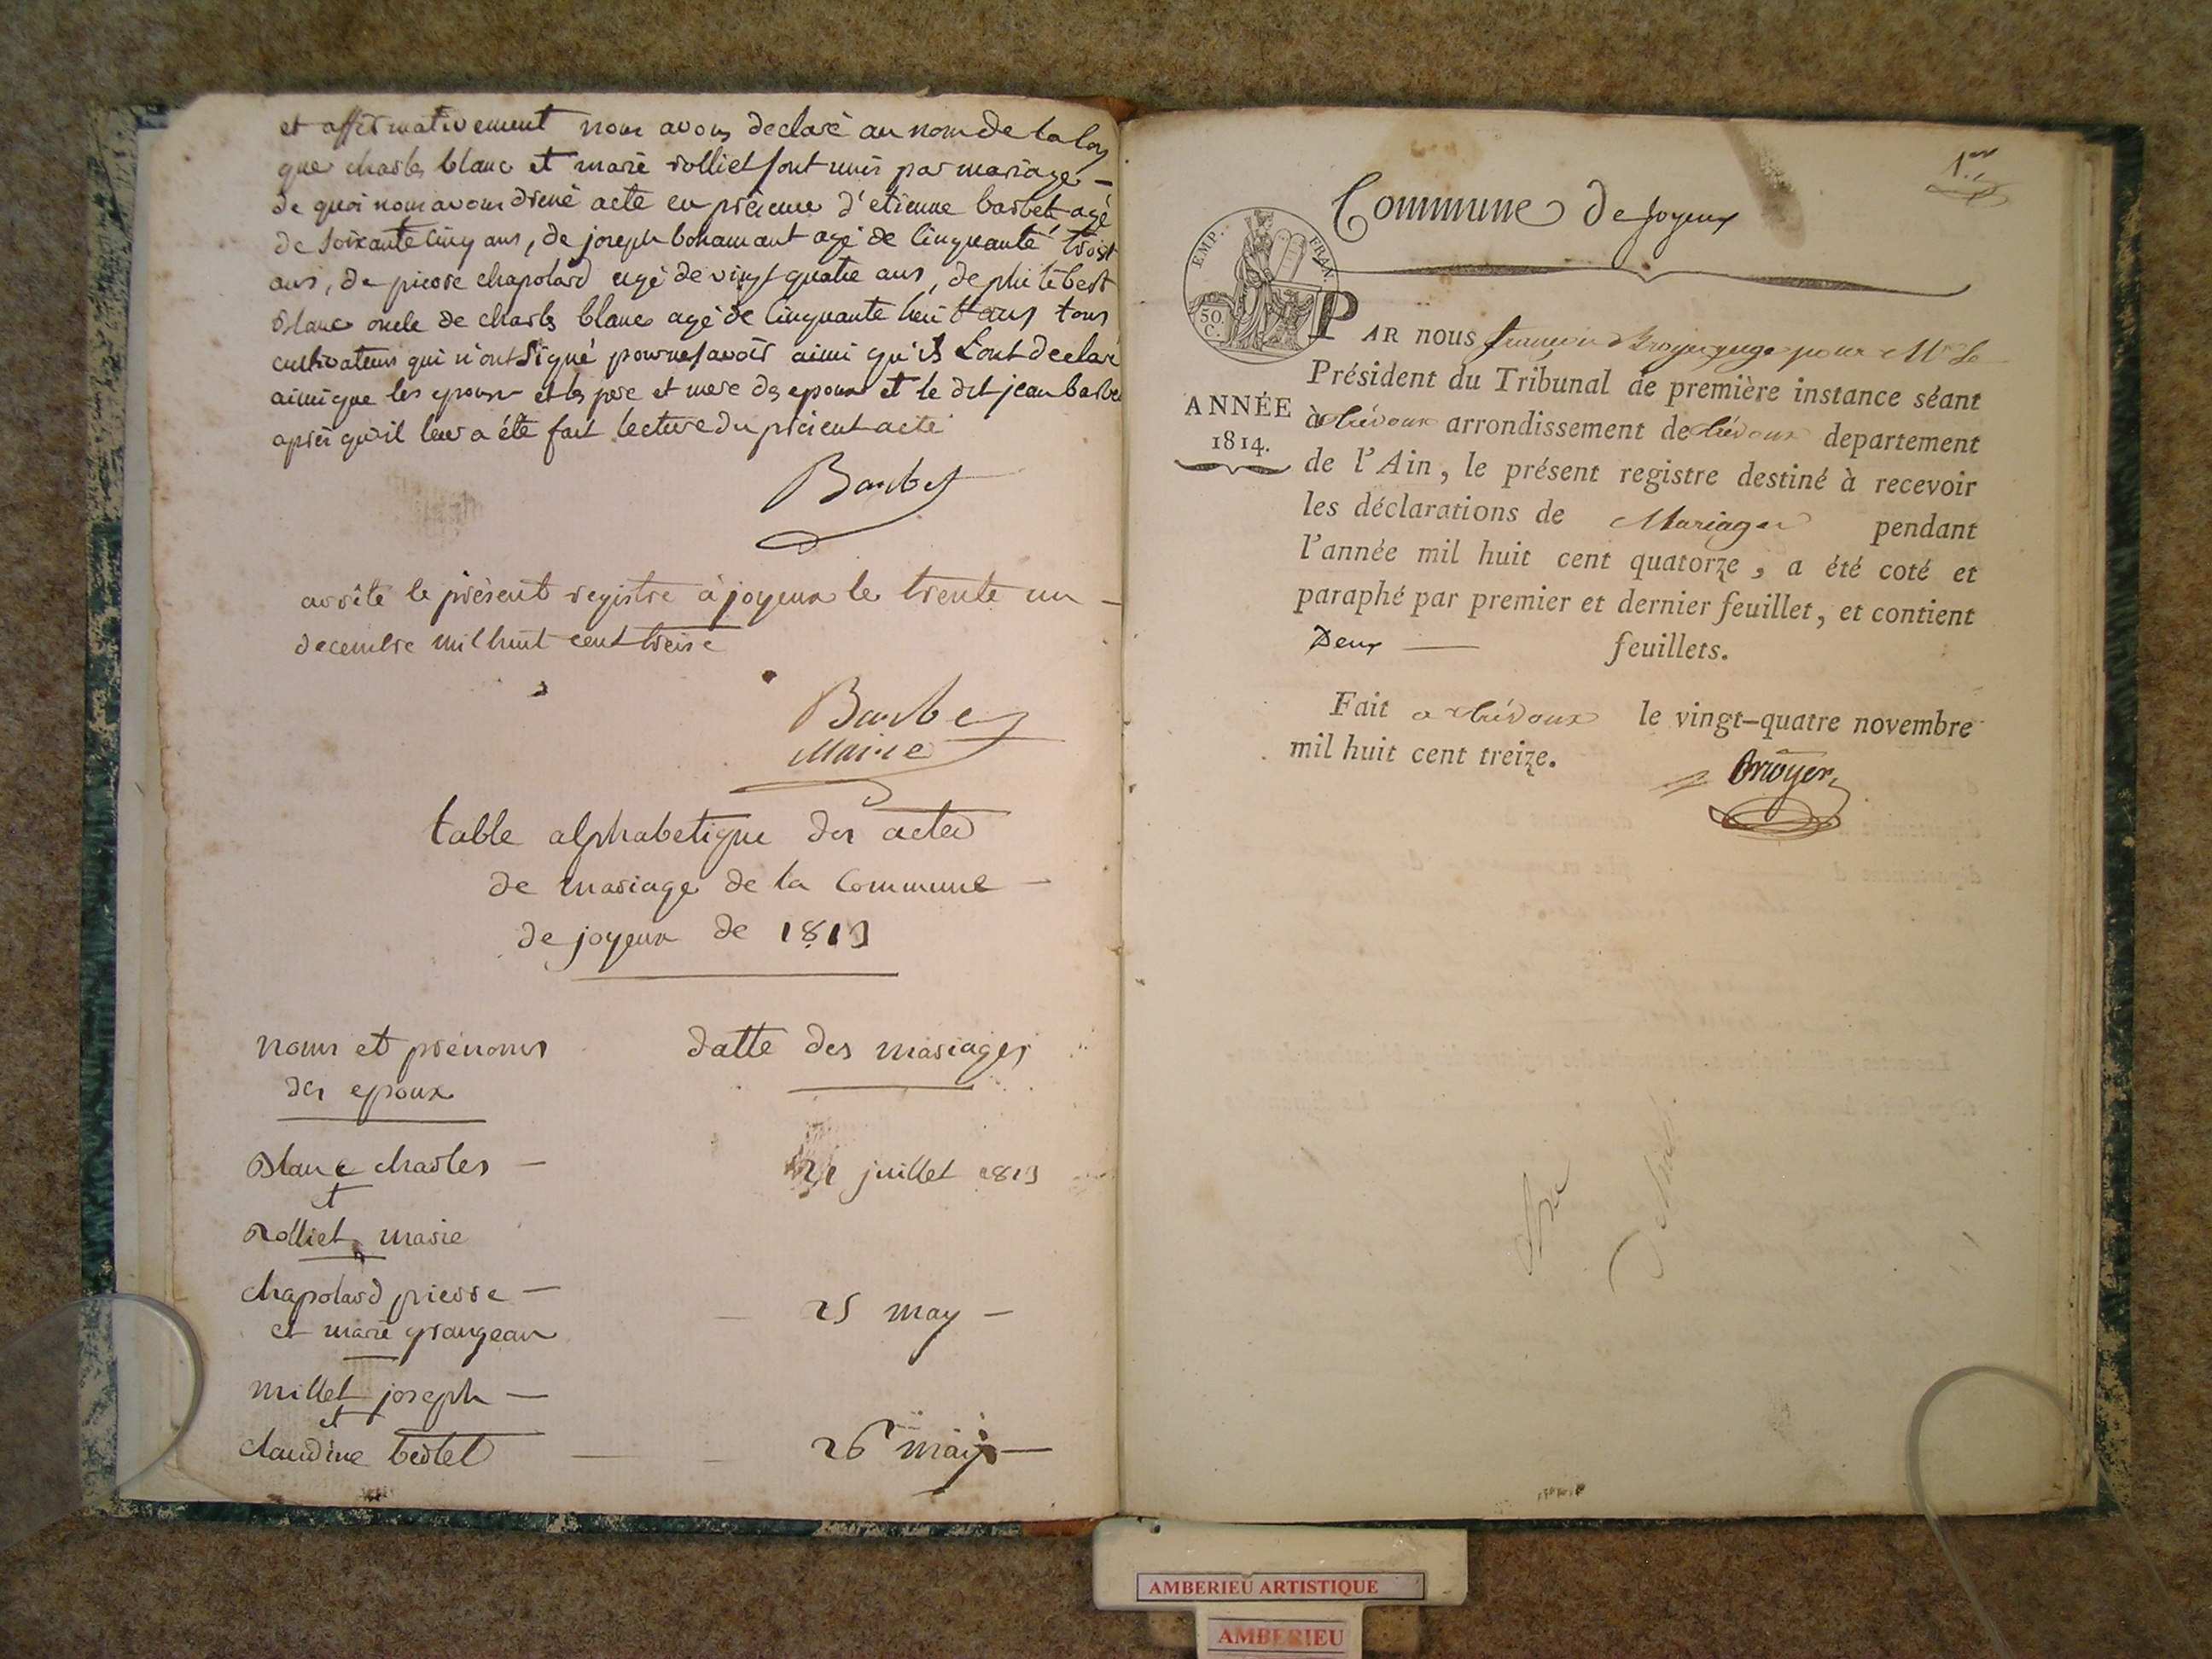 et affirmativement nous avons declaré au nom de la loy
que charles blanc et marie rolliet sont unis par mariage —
de quoi nous avons dréné acte en présence d'etienne barbet agé
de soixante cinq ans, de joseph bonamant agé de cinquante trois
ans, de pierre chapolard agé de vingt quatre ans, de philibert
blanc oncle de charles blanc agé de cinquante huit ans tous
cultivateurs qui n'ont signé pour ne savoir ainsi qu'ils L'ont declaré
ainsi que les epoux et les pere et mere des epoux et le dit jean barbet
après qu'il leur a été fait lecture du présent acte
Barbet
arrêté le présent registre à joyeux le trente un —
decembre mil huit cent treise
Barbet
Maire
table alphabetique des actes
de mariage de la Commune —
de joyeux de 1813
noms et prénoms datte des mariages
des epoux
Blanc charles — 21 juillet 1813
et
Rolliet marie
chapolard pierre — — 25 may —
et marie grangean
millet joseph —
et
claudine bertet — — 26 may —
1.er
Commune de Joyeux
EMP. FRAN.
50.
C.
ANNÉE
1814.
PAR nous françois Broyer juge pour Mr le
Président du Tribunal de première instance séant
à trévoux arrondissement de trévoux departement
de l'Ain, le présent registre destiné à recevoir
les déclarations de Mariages pendant
l'année mil huit cent quatorze, a été coté et
paraphé par premier et dernier feuillet, et contient
Deux — feuillets.
Fait a trévoux le vingt-quatre novembre
mil huit cent treize.
Broyer
AMBERIEU ARTISTIQUE
AMBERIEU